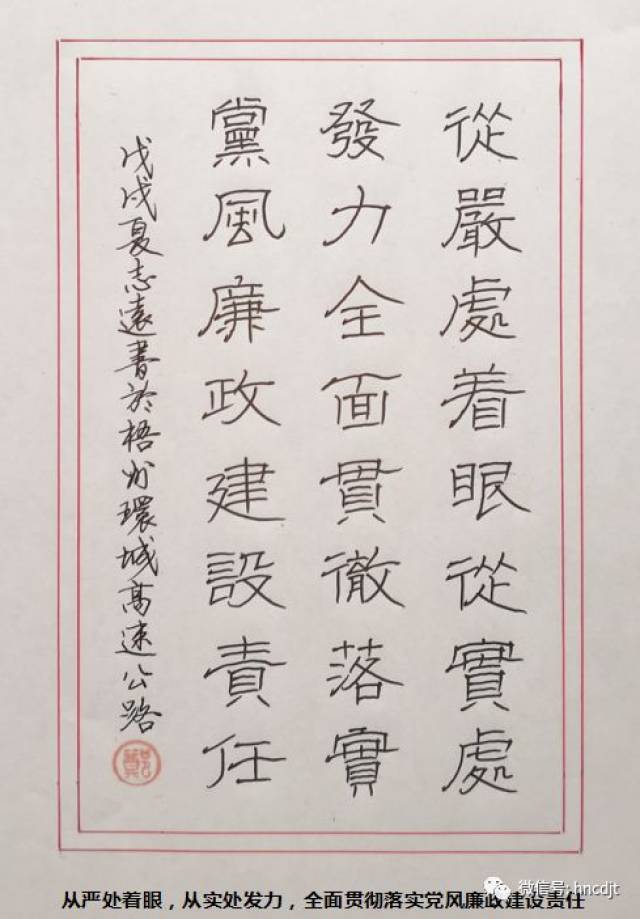 從嚴處着眼從實處
發力全面貫徹落實
黨風廉政建設責任
戊戌夏志遠書於梧州環城高速公路
鄭
微信号: hncdjt
从严处着眼，从实处发力，全面贯彻落实党风廉政建设责任